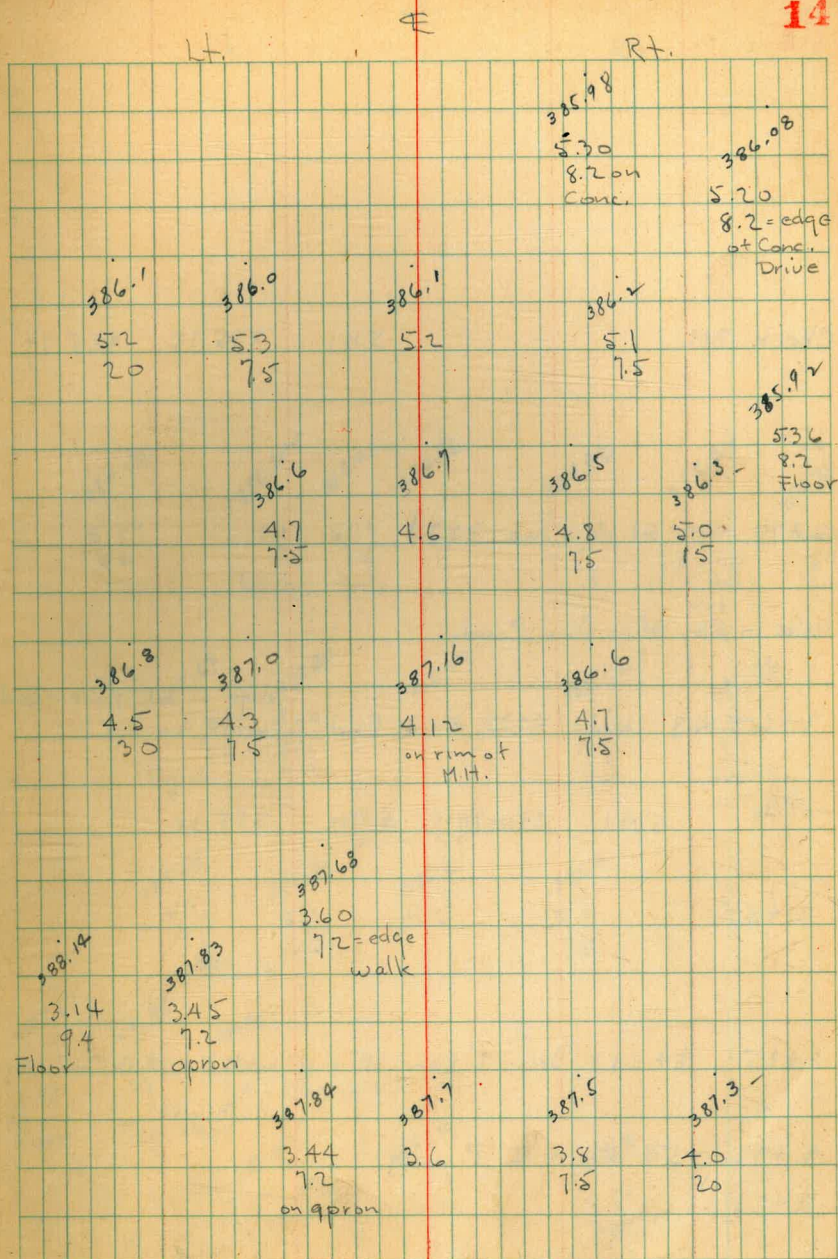 14
℄
Lt.
Rt.
385.98
5.30
8.2 on
Conc.
386.08
5.20
8.2 = edge
of Conc.
Drive
386.1
5.2
20
386.0
5.3
7.5
386.1
5.2
386.2
5.1
7.5
385.92
5.36
8.2
Floor
386.6
4.7
7.5
386.7
4.6
386.5
4.8
7.5
386.3 -
5.0
15
386.8
4.5
30
387.0
4.3
7.5
387.16
4.12
on rim of
M.H.
386.6
4.7
7.5
387.68
3.60
7.2 = edge
walk
388.14
3.14
9.4
Floor
387.83
3.45
7.2
apron
387.84
3.44
7.2
on apron
387.7
3.6
387.5
3.8
7.5
387.3 -
4.0
20